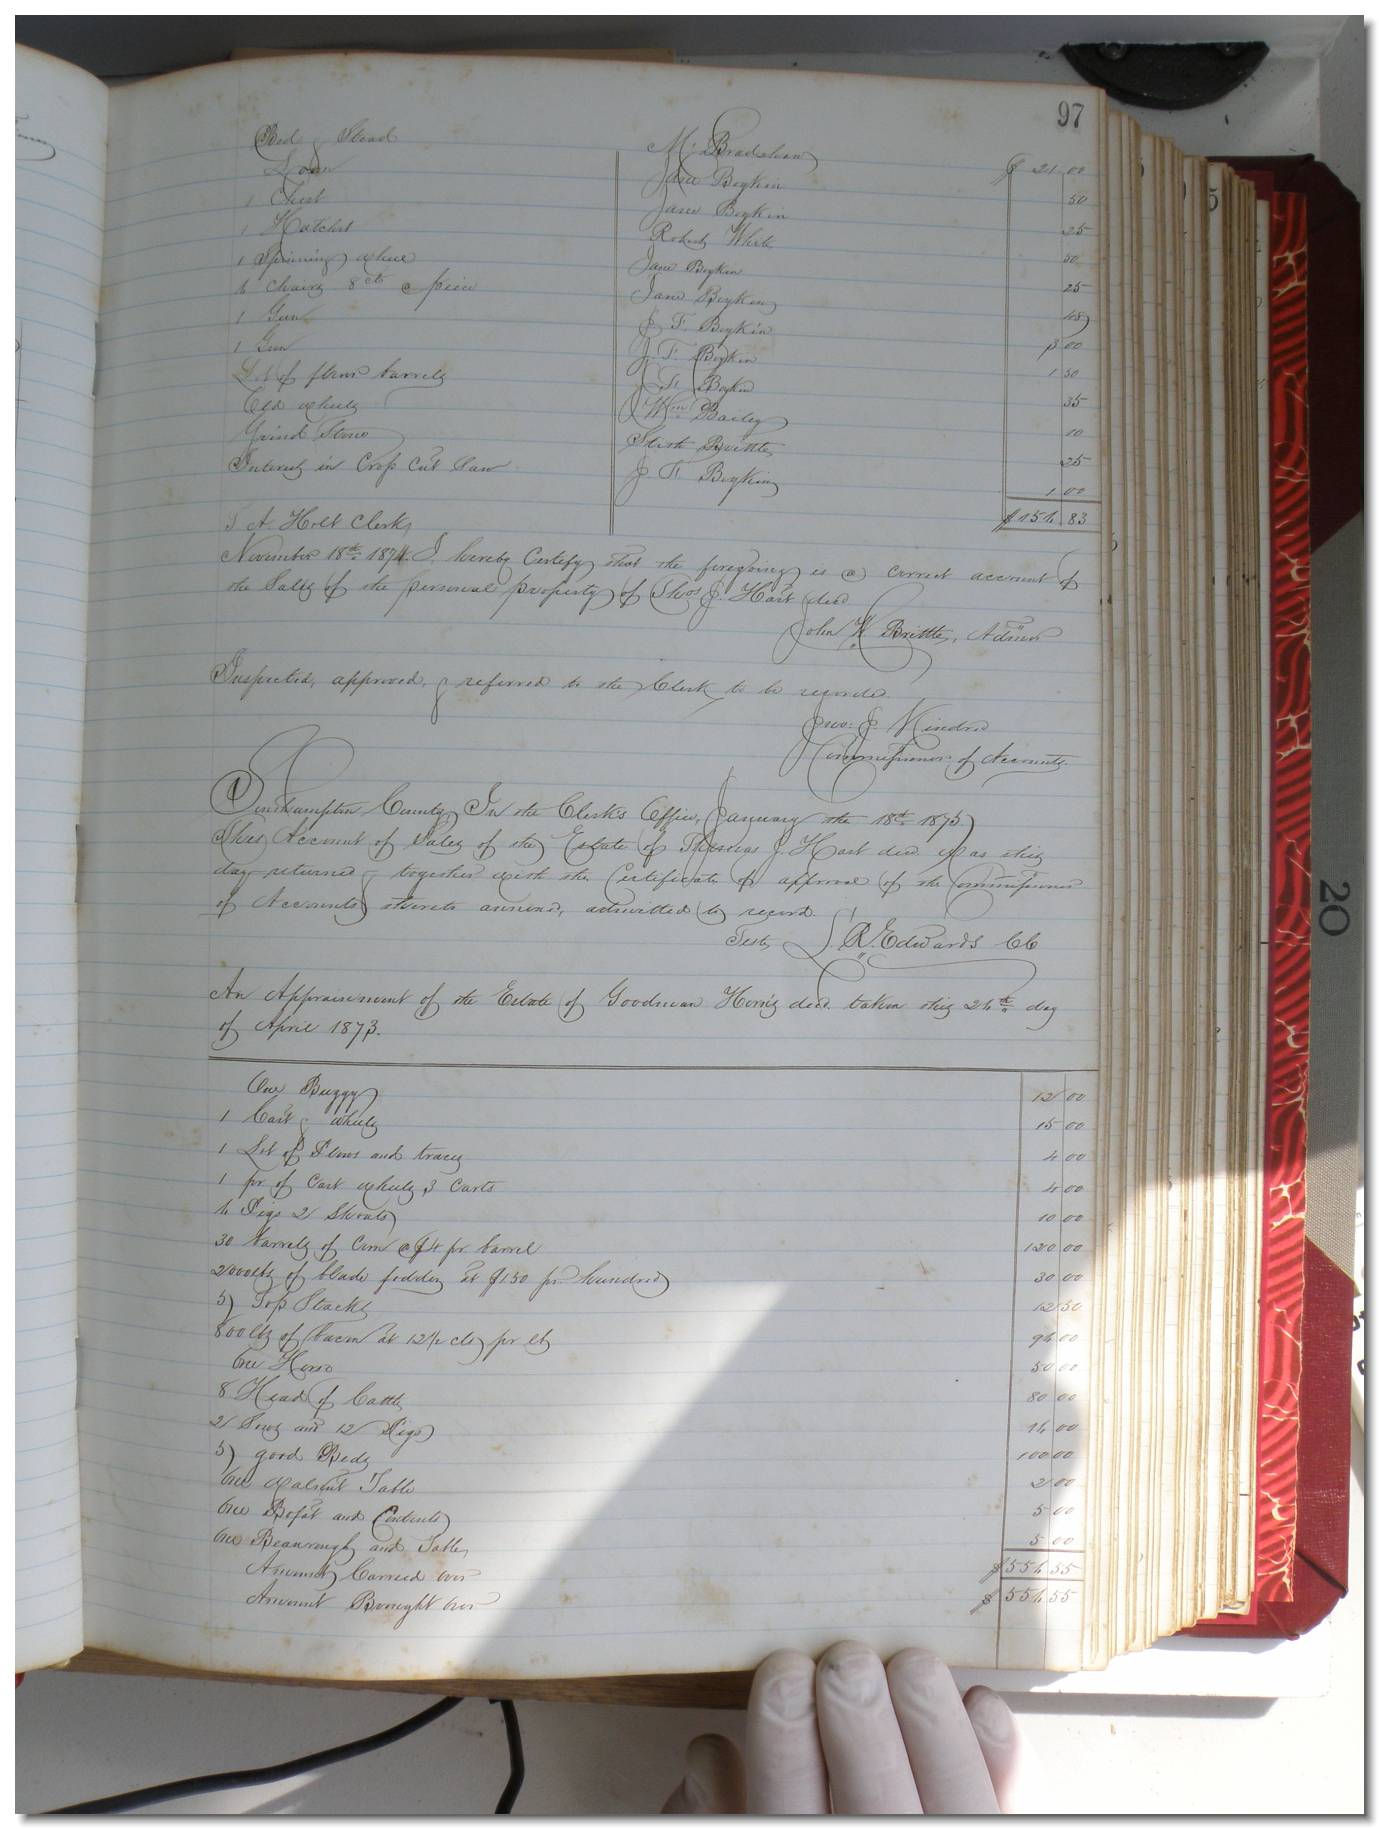 97
Bed & Stead Mc Bradshaw $ 21 00
Loom Jane Boykin 50
1 Chest Jane Boykin 25
1 Hatchet Robert White 50
1 Spinning wheel Jane Boykin 25
6 Chairs 8cts a piece Jane Boykin 48
1 Gun J. F. Boykin 3 00
1 Gun J. F. Boykin 1 50
Lot of flour barrels J. F. Boykin 35
Old wheels Wm Bailey 10
Grind Stone Brittle 25
Interest in Crop Cut Saw J. F. Boykin 1 00
S A. Holt Clerk $154 83
November 18th 1874. I hereby Certify that the foregoing is a correct account of
the Sales of the personal property of Thos J. Hart decd
John W. Brittle, Admr
Inspected, approved, & referred to the Clerk to be recorded
Jno: J. Kindred
Commissioner of Accounts.
Southampton County, In the Clerk's Office, January the 18th 1875
This Account of Sales of the Estate of Thomas J. Hart decd. was this
day returned & together with the Certificate of approval of the Commissioner
of Accounts thereto annexed, admitted to record.
Teste L. R. Edwards CC
An Appraisement of the Estate of Goodman decd. taken this 24th day
of April 1873.
One Buggy 12 00
1 Cart & wheels 15 00
1 Lot of Plows and traces 4 00
1 pr of Cart wheels 3 Carts 4 00
4 Pigs 2 Shoats 10 00
30 barrels of Corn @ $4 pr barrel 120 00
2000lbs of blade fodder at $1.50 pr hundred 30 00
5 Top Stacks 12 50
800lbs of bacon at 12½ cts pr lb 94 00
One Horse 50 00
8 Head of Cattle 80 00
2 Sows and 12 Pigs 14 00
5 good Beds 100 00
One walnut Table 2 00
One Bofat and Contents 5 00
One Beaurough and Table 5 00
Amount Carried over $554 55
Amount Bought over $ 554 55
20